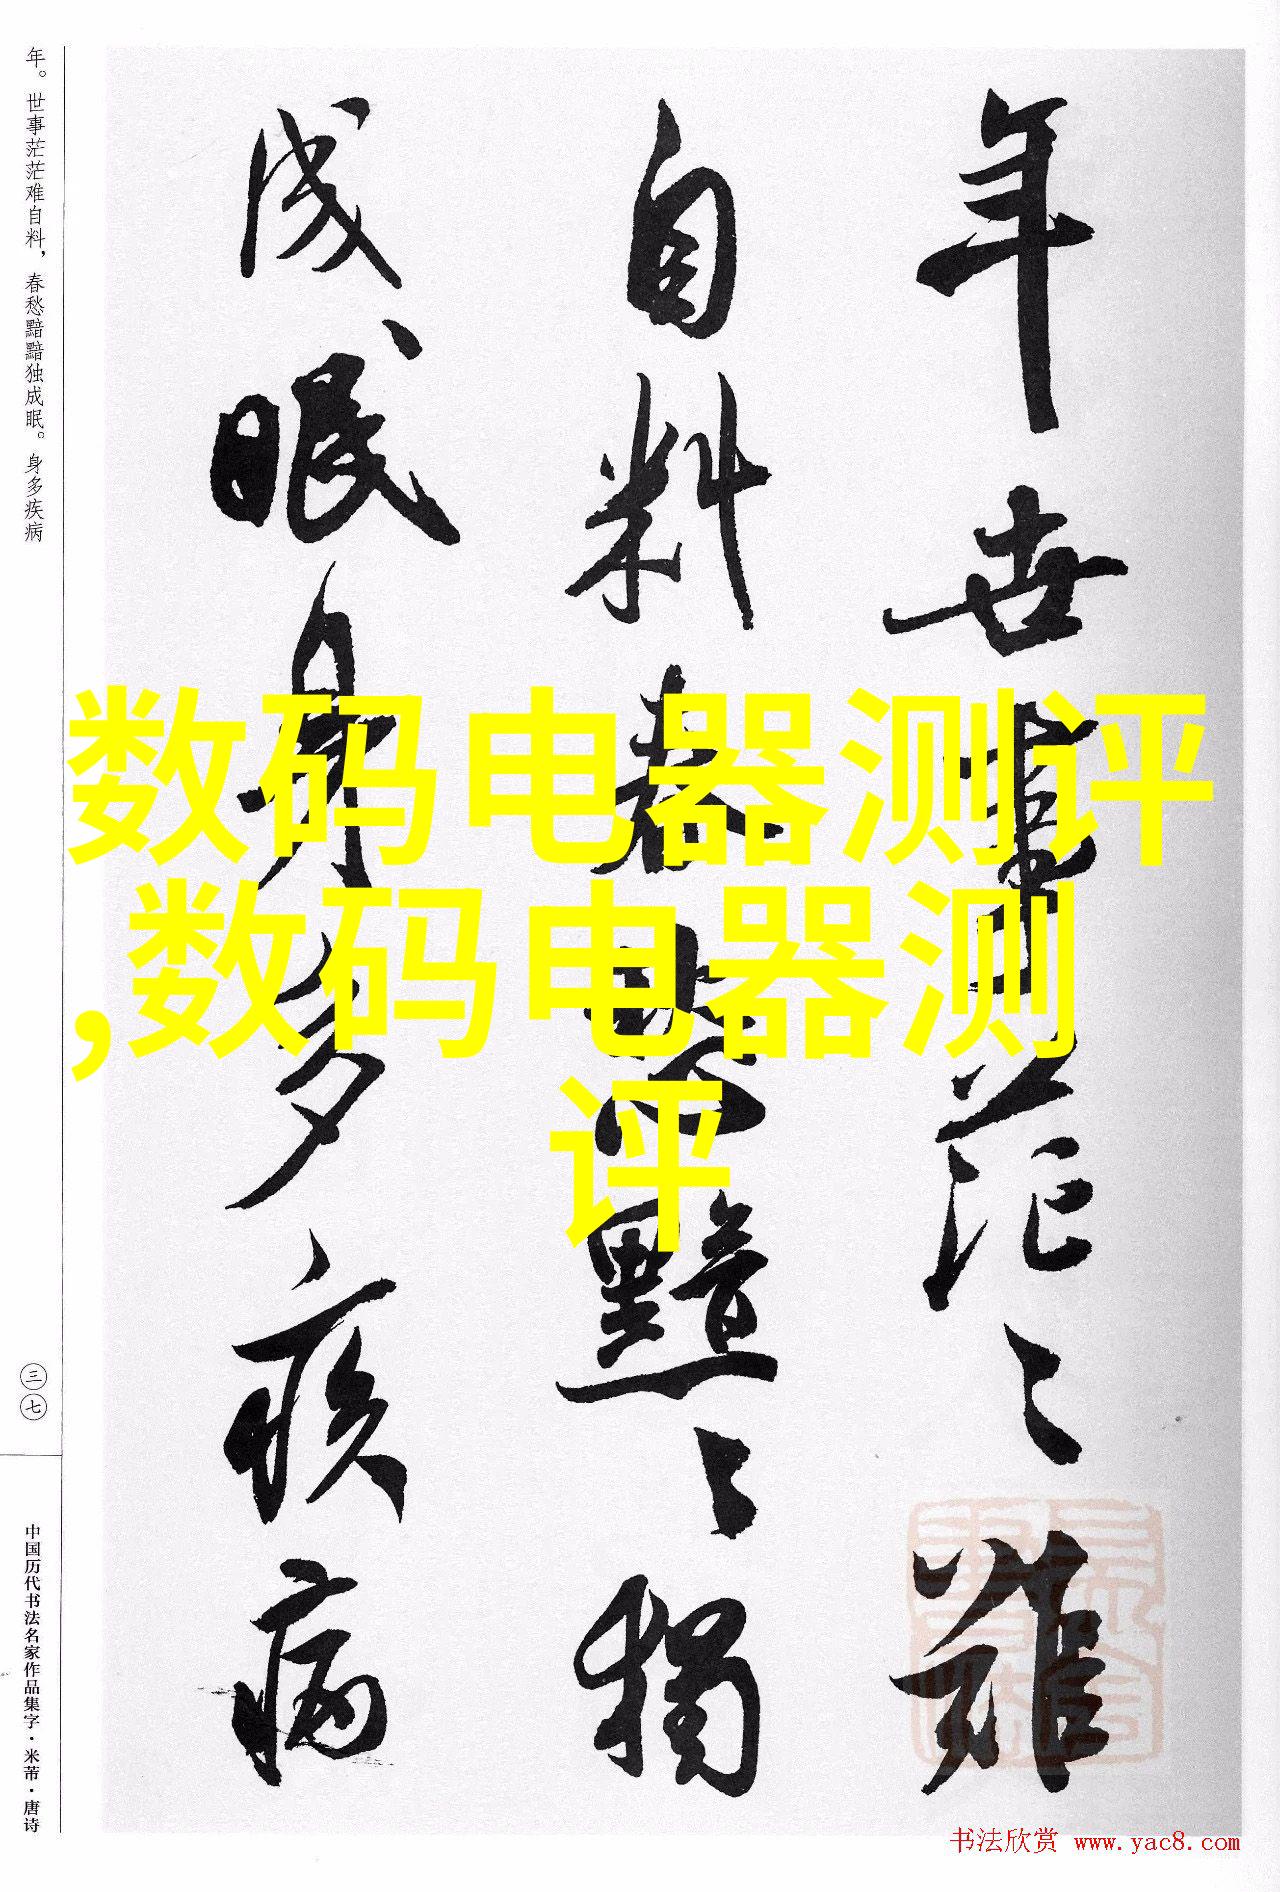 年世事茫〻難
自料春愁黯〻獨
成眠身多疾病
年。世事茫茫难自料，春愁黯黯独成眠。身多疾病
三七
中国历代书法名家作品集字·米芾·唐诗
数码电器测评
,数码电器测
评
书法欣赏 www.yac8.com